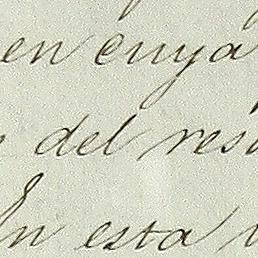 en cuya
del res
En esta